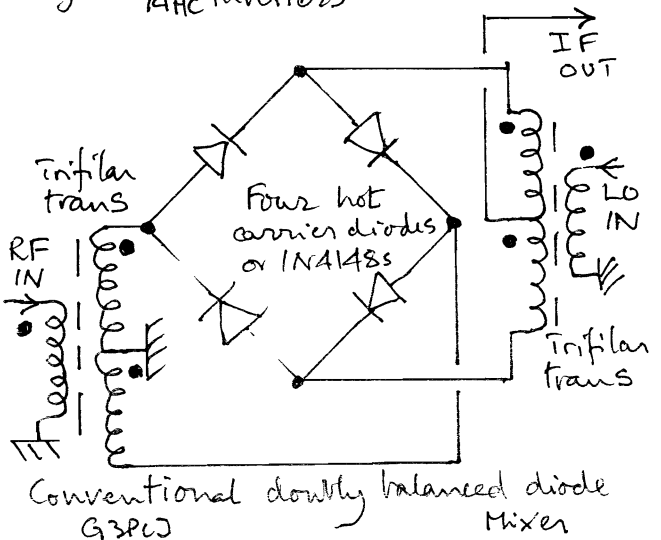 74HC inverters
IF
OUT
Trifilar
trans
Four hot
carrier diodes
or 1N4148s
LO
IN
RF
IN
Trifilar
trans
Conventional doubly balanced diode
G3PCJ Mixer